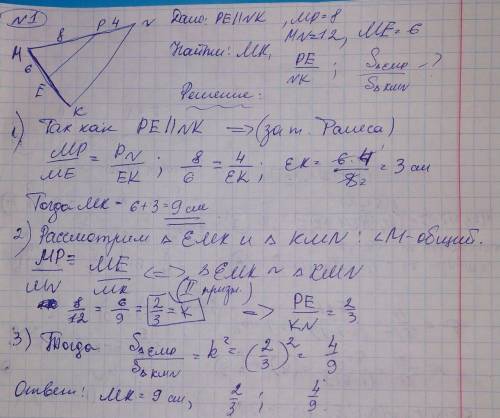 №1
Дано: PE||NK, MP=8
MN=12, ME=6
Найти: MK, PE/NK ; S△EMP/S△KMN -?
M 8 P 4 N 6 E K
Решение:
1) Так как PE||NK => (за т. Фалеса)
MP/ME = PN/EK ; 8/6 = 4/EK ; EK = 6·4/8 2 = 3 см
Тогда MK = 6+3 = 9 см
2) Рассмотрим △ EMK и △ KMN: ∠M-общий.
MP/MN = ME/MK <=> △EMK ~ △KMN
(II призн.)
8/12 = 6/9 = 2/3 = k => PE/KN = 2/3
3) Тогда S△EMP/S△KMN = k² = (2/3)² = 4/9
Ответ: MK = 9 см, 2/3 ; 4/9.